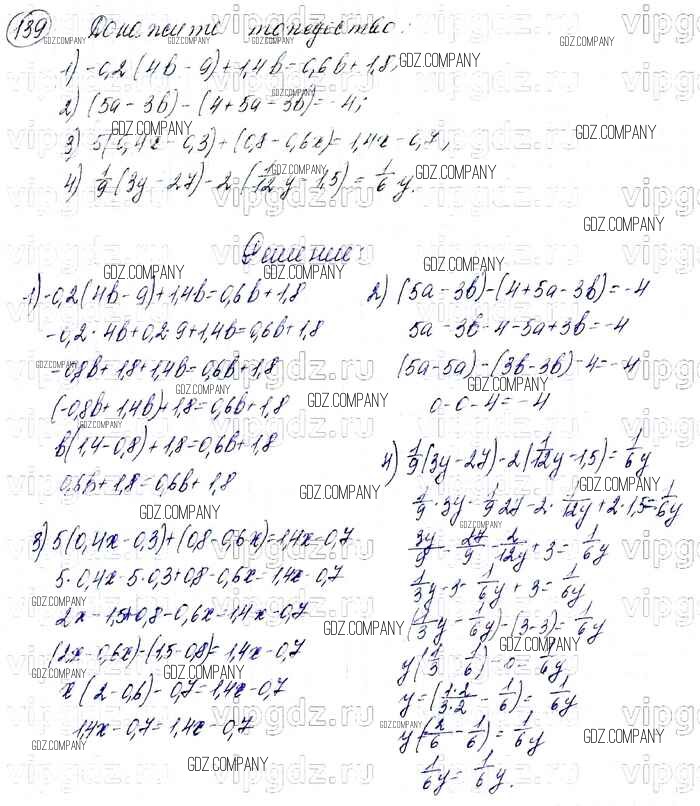 139 Докажите тождество:
1) -0,2(4b - 9) + 1,4b = 0,6b + 1,8;
2) (5a - 3b) - (4 + 5a - 3b) = -4;
3) 5(0,4x - 0,3) + (0,8 - 0,6x) = 1,4x - 0,7;
4) 1/9(3y - 27) - 2(1/12y - 1,5) = 1/6y.
Решение:
1) -0,2(4b - 9) + 1,4b = 0,6b + 1,8
-0,2 · 4b + 0,2 · 9 + 1,4b = 0,6b + 1,8
-0,8b + 1,8 + 1,4b = 0,6b + 1,8
(-0,8b + 1,4b) + 1,8 = 0,6b + 1,8
b(1,4 - 0,8) + 1,8 = 0,6b + 1,8
0,6b + 1,8 = 0,6b + 1,8
2) (5a - 3b) - (4 + 5a - 3b) = -4
5a - 3b - 4 - 5a + 3b = -4
(5a - 5a) - (3b - 3b) - 4 = -4
0 - 0 - 4 = -4
3) 5(0,4x - 0,3) + (0,8 - 0,6x) = 1,4x - 0,7
5 · 0,4x - 5 · 0,3 + 0,8 - 0,6x = 1,4x - 0,7
2x - 1,5 + 0,8 - 0,6x = 1,4x - 0,7
(2x - 0,6x) - (1,5 - 0,8) = 1,4x - 0,7
x(2 - 0,6) - 0,7 = 1,4x - 0,7
1,4x - 0,7 = 1,4x - 0,7
4) 1/9(3y - 27) - 2(1/12y - 1,5) = 1/6y
1/9 · 3y - 1/9 27 - 2 · 1/12y + 2 · 1,5 = 1/6y
3y/9 - 27/9 - 2/12y + 3 = 1/6y
1/3y - 3 - 1/6y + 3 = 1/6y
(1/3y - 1/6y) - (3 - 3) = 1/6y
y(1/3 - 1/6) - 0 = 1/6y
y = (1·2/3·2 - 1/6) = 1/6y
y(2/6 - 1/6) = 1/6y
1/6y = 1/6y.
GDZ.COMPANY
vipgdz.ru